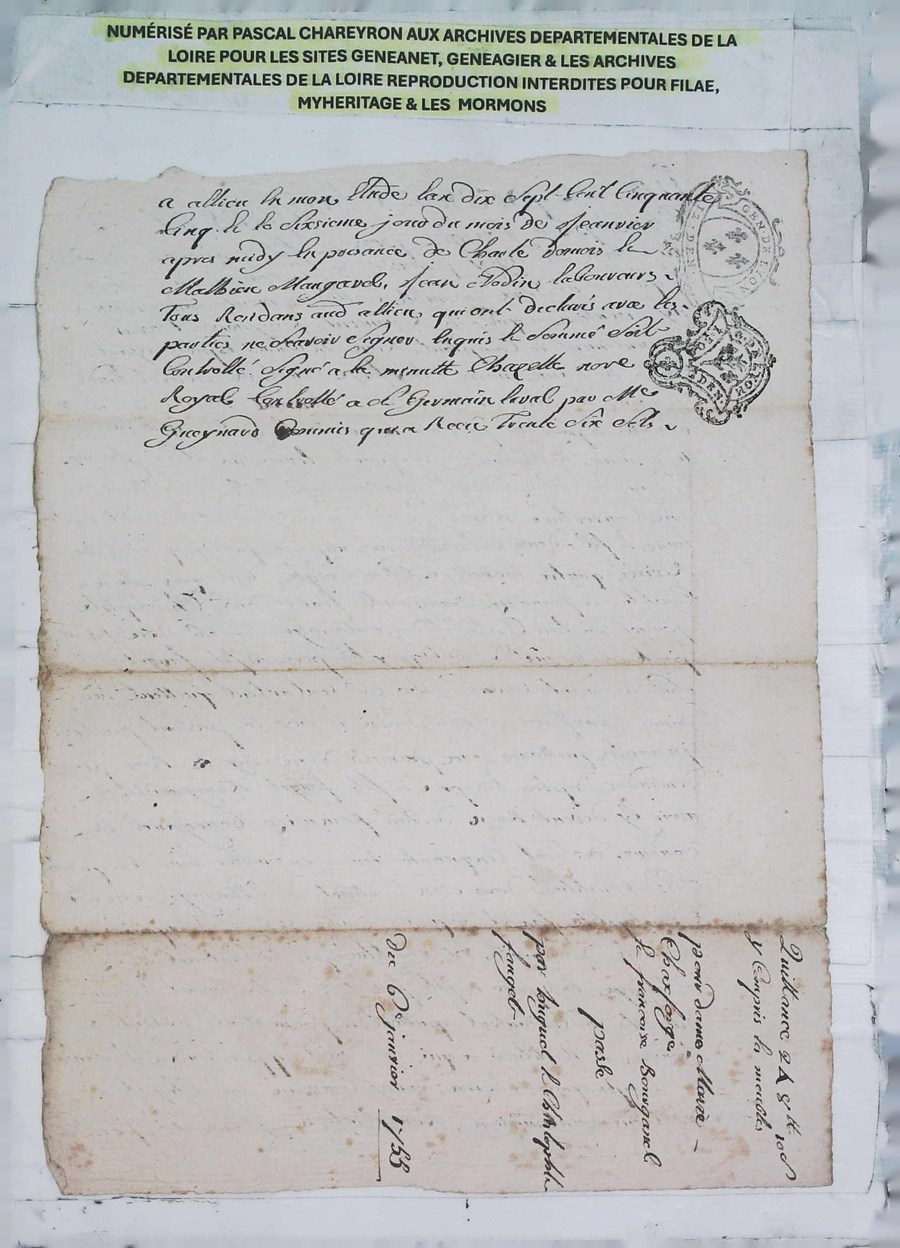 NUMÉRISÉ PAR PASCAL CHAREYRON AUX ARCHIVES DEPARTEMENTALES DE LA
LOIRE POUR LES SITES GENEANET, GENEAGIER & LES ARCHIVES
DEPARTEMENTALES DE LA LOIRE REPRODUCTION INTERDITES POUR FILAE,
MYHERITAGE & LES MORMONS
a allieu en mon Etude lan dix Sept Cent Cinquante
Cinq et le Sixsieme jour du mois de Jeanvier
apres midy En presance de Charle
Mathieu Mangavel, Jean laboureurs
Tous Residans aud allieu qui ont declarés avec les
parties ne Scavoir Signer Enquis et Sommé Soit
Controllé Signé a la minutte Chazelle nore
Royal Controllé a St Germain laval par Me
Gueynard Commis qui a Receu Trente Six Sols
Quittance de 10 s
y Compris les meubles
pour dame Marie
Chaxfeige
et francoise Bourganel
passé
par
du 6e janvier 1755